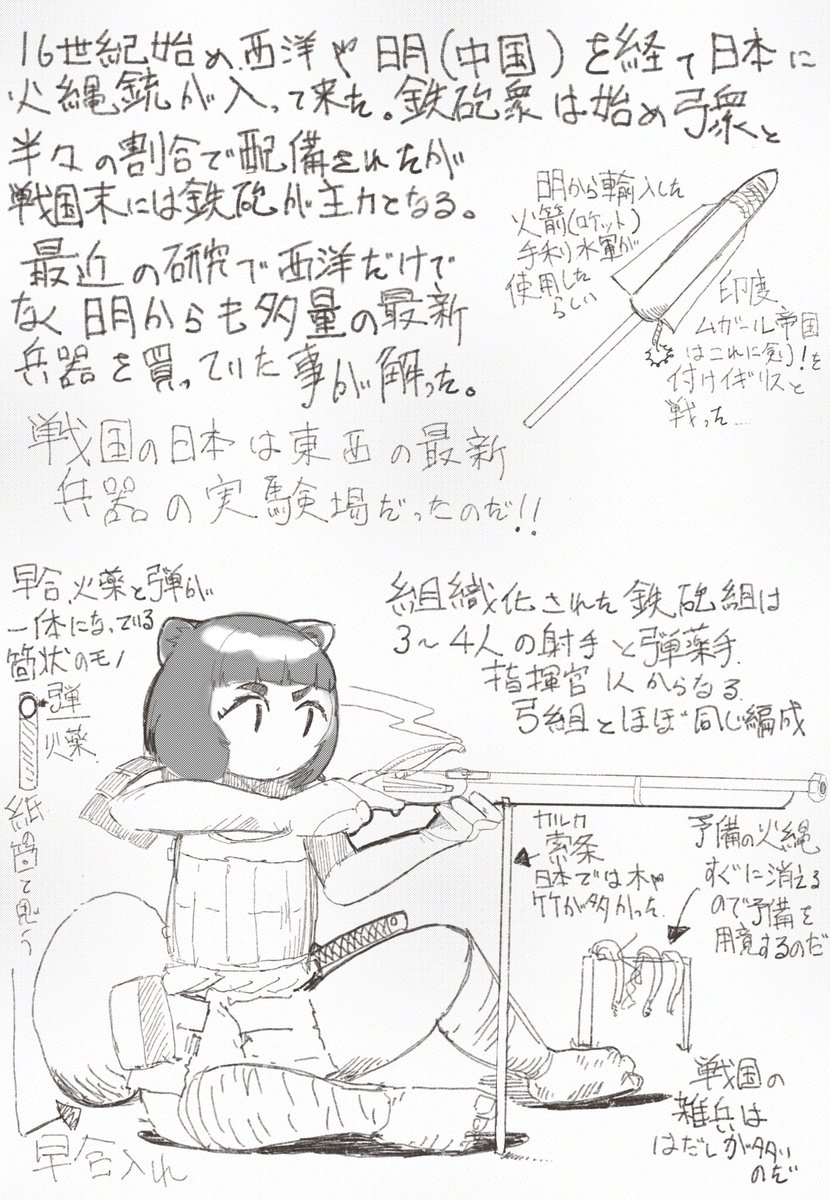 16世紀始め、西洋や明(中国)を経て日本に
火縄銃が入って来た。鉄砲衆は始め弓衆と
半々の割合で配備されたが
戦国末には鉄砲が主力となる。
最近の研究で西洋だけで
なく明からも多量の最新
兵器を買っていた事が解った。
戦国の日本は東西の最新
兵器の実験場だったのだ!!
明から輸入した
火箭(ロケット)
手利り水軍が
使用した
らしい
印度、
ムガール帝国
はこれに剣!を
付けイギリスと
戦った…
早合、火薬と弾が
一体になっている
筒状のモノ
弾
火薬
紙の筒で
組織化された鉄砲組は
3〜4人の射手と弾薬手、
指揮官1人からなる
弓組とほぼ同じ編成
索条
日本では木や
竹が多かった
予備の火縄
すぐに消える
ので予備を
用意するのだ
戦国の
雑兵は
はだしが多い
のだ
早合入れ